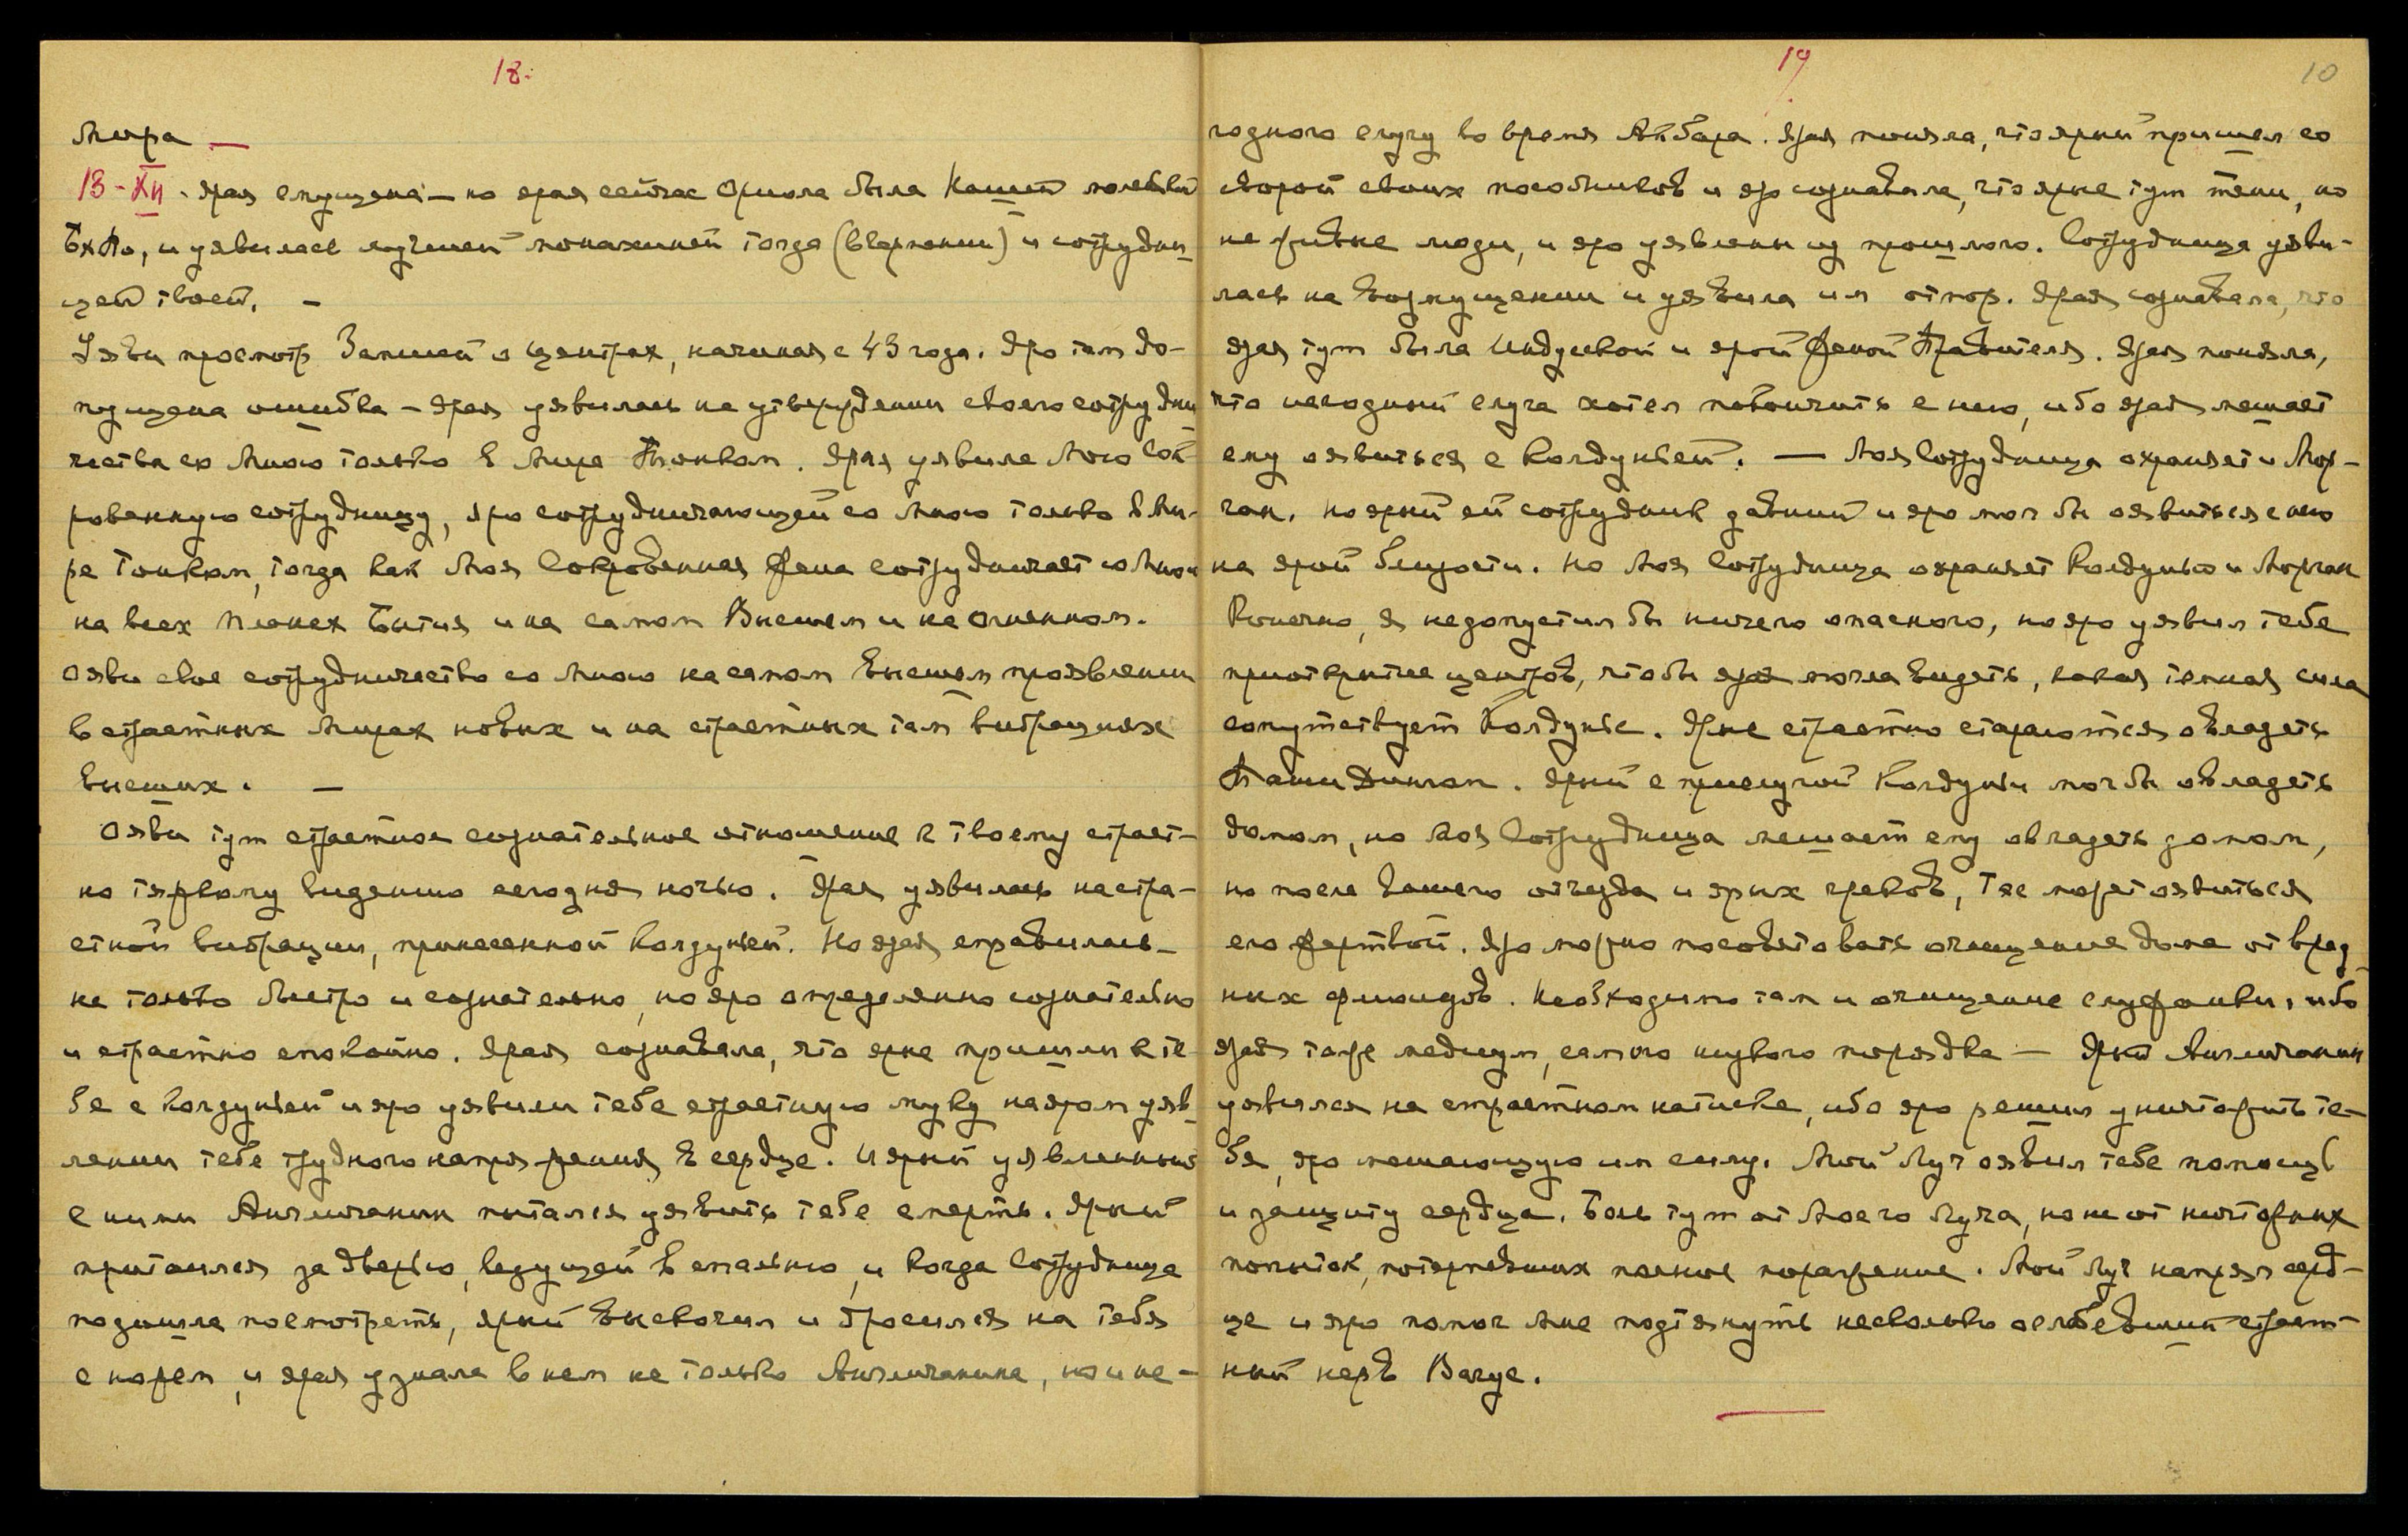 18.
Мира —
13-XII. Ярая смущена — но ярая сейчас Ориола была Нашей
и уявилась лучшей монахиней тогда (в Германии) и сотрудни-
цей твоей. —
Уяви просмотр Записей о центрах, начиная с 43 года. Яро там до-
пущена ошибка — Ярая уявилась на утверждении своего сотрудни-
чества со Мною только в Мире Тонком. Ярая уявила Мою Сок-
ровенную сотрудницу, яро сотрудничающей со Мною только в Ми-
ре Тонком, тогда как Моя Сокровенная Жена сотрудничает со Мною
на всех планах Бытия и на самом Высшем и на Огненном.
Ояви свое сотрудничество со Мною на самом Высшем проявлении
в страстных Мирах новых и на страстных там вибрациях
Высших. —
Ояви тут страстное сознательное отношение к твоему страст-
но тяжкому видению сегодня ночью. Ярая уявилась на стра-
стной вибрации, принесенной Колдуньей. Но ярая справилась —
не только быстро и сознательно, но яро определенно сознательно
и страстно спокойно. Ярая сознавала, что ярые пришли к те-
бе с Колдуньей и яро уявили тебе страстную муку на яром уяв-
лении тебе трудного напряжения в сердце. И ярый уявленный
с ними Англичанин пытался уявить тебе смерть. Ярый
притаился за дверью, ведущей в спальню, и когда Сотрудница
подошла посмотреть, ярый выскочил и бросился на тебя
с ножем, и ярая узнала в нем не только Англичанина, но и не-
19
10
годного слугу во время Акбара. Ярая поняла, что ярый пришел со
сворой своих пособников и яро сознавала, что ярые тут тени, но
не живые люди, и яро уявлены из прошлого. Сотрудница уяви-
лась на возмущении и уявила им отпор. Ярая сознавала, что
ярая тут была Индусской и ярой Женой Правителя. Ярая поняла,
что негодный слуга хотел покончить с нею, ибо ярая мешает
ему оявиться с Колдуньей. — Моя Сотрудница охраняет и Мор-
ган. Но ярый ей сотрудник давний и яро мог бы оявиться с нею
на ярой близости. Но Моя Сотрудница охраняет Колдунью и Морган
Конечно, Я не допустил бы ничего опасного, но яро уявил тебе
приоткрытие центров, чтобы ярая могла видеть, какая темная сила
сопутствует Колдунье. Ярые страстно стараются овладеть
Нашим Домом. Ярый с прислугой Колдуньи мог бы овладеть
домом, но Моя Сотрудница мешает ему овладеть домом,
но после Вашего отъезда и ярых греков, Тае может оявиться
его жертвой. Яро можно посоветовать очищение дома от вред-
ных флюидов. Необходимо там и очищение служанки, ибо
ярая тоже медиум, самого низкого порядка — Ярый Англичанин
уявился на страстном натиске, ибо яро решил уничтожить те-
бя, яро мешающую им силу. Мой Луч оявил тебе помощь
и защиту сердца. Боль тут от Моего Луча, но не от ничтожных
попыток, потерпевших полное поражение. Мой Луч напряг серд-
це и яро помог Мне подтянуть несколько ослабевший страст-
ный нерв Вагус.